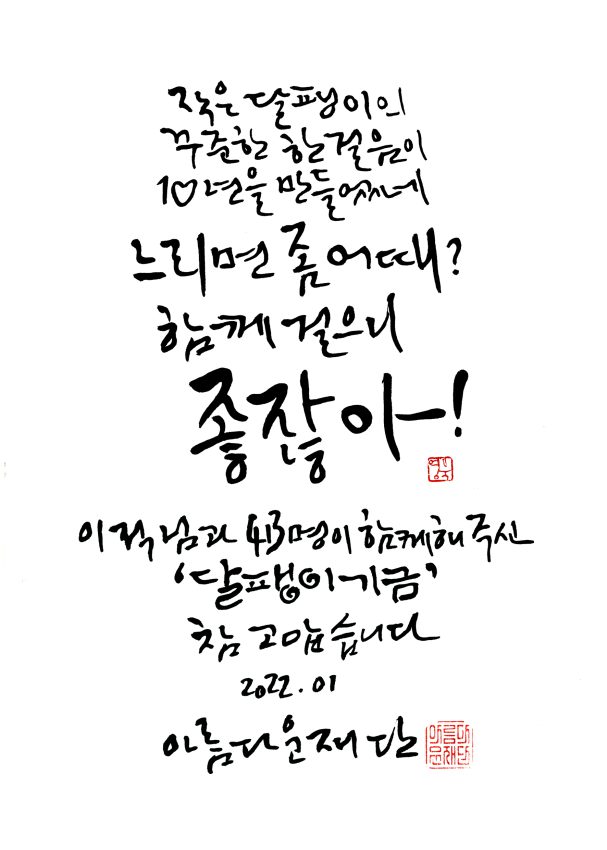 작은 달팽이의
꾸준한 한걸음이
10년을 만들었네
느리면 좀 어때?
함께 걸으니
좋잖아!
이적님과 413명이 함께해주신
'달팽이기금'
참 고맙습니다
2022.01
아름다운재단
아름다운재단